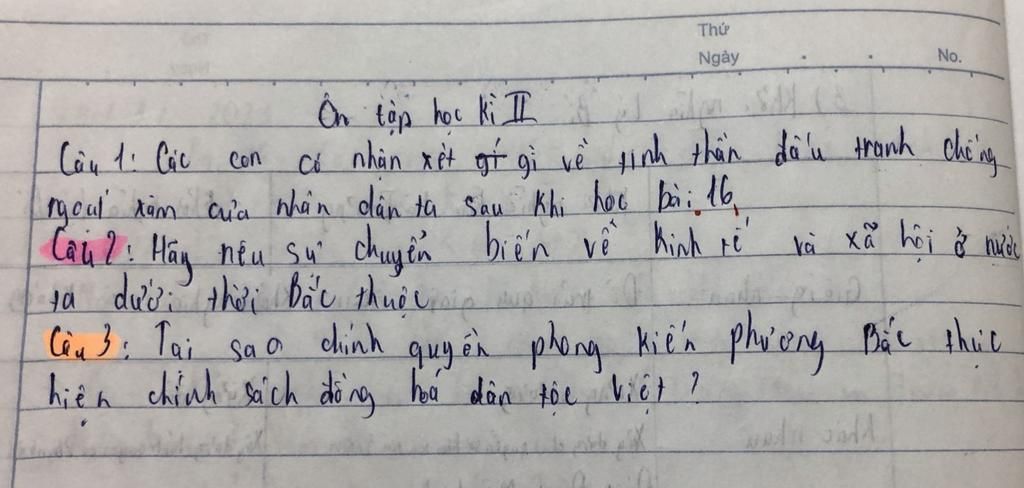 Thứ
Ngày No.
Ôn tập học kì II
Câu 1: Các con có nhận xét gì về tinh thần đấu tranh chống
ngoại xâm của nhân dân ta sau khi học bài 16.
Câu 2: Hãy nêu sự chuyển biến về kinh tế và xã hội ở nước
ta dưới thời Bắc thuộc
Câu 3: Tại sao chính quyền phong kiến phương Bắc thực
hiện chính sách đồng hoá dân tộc Việt?